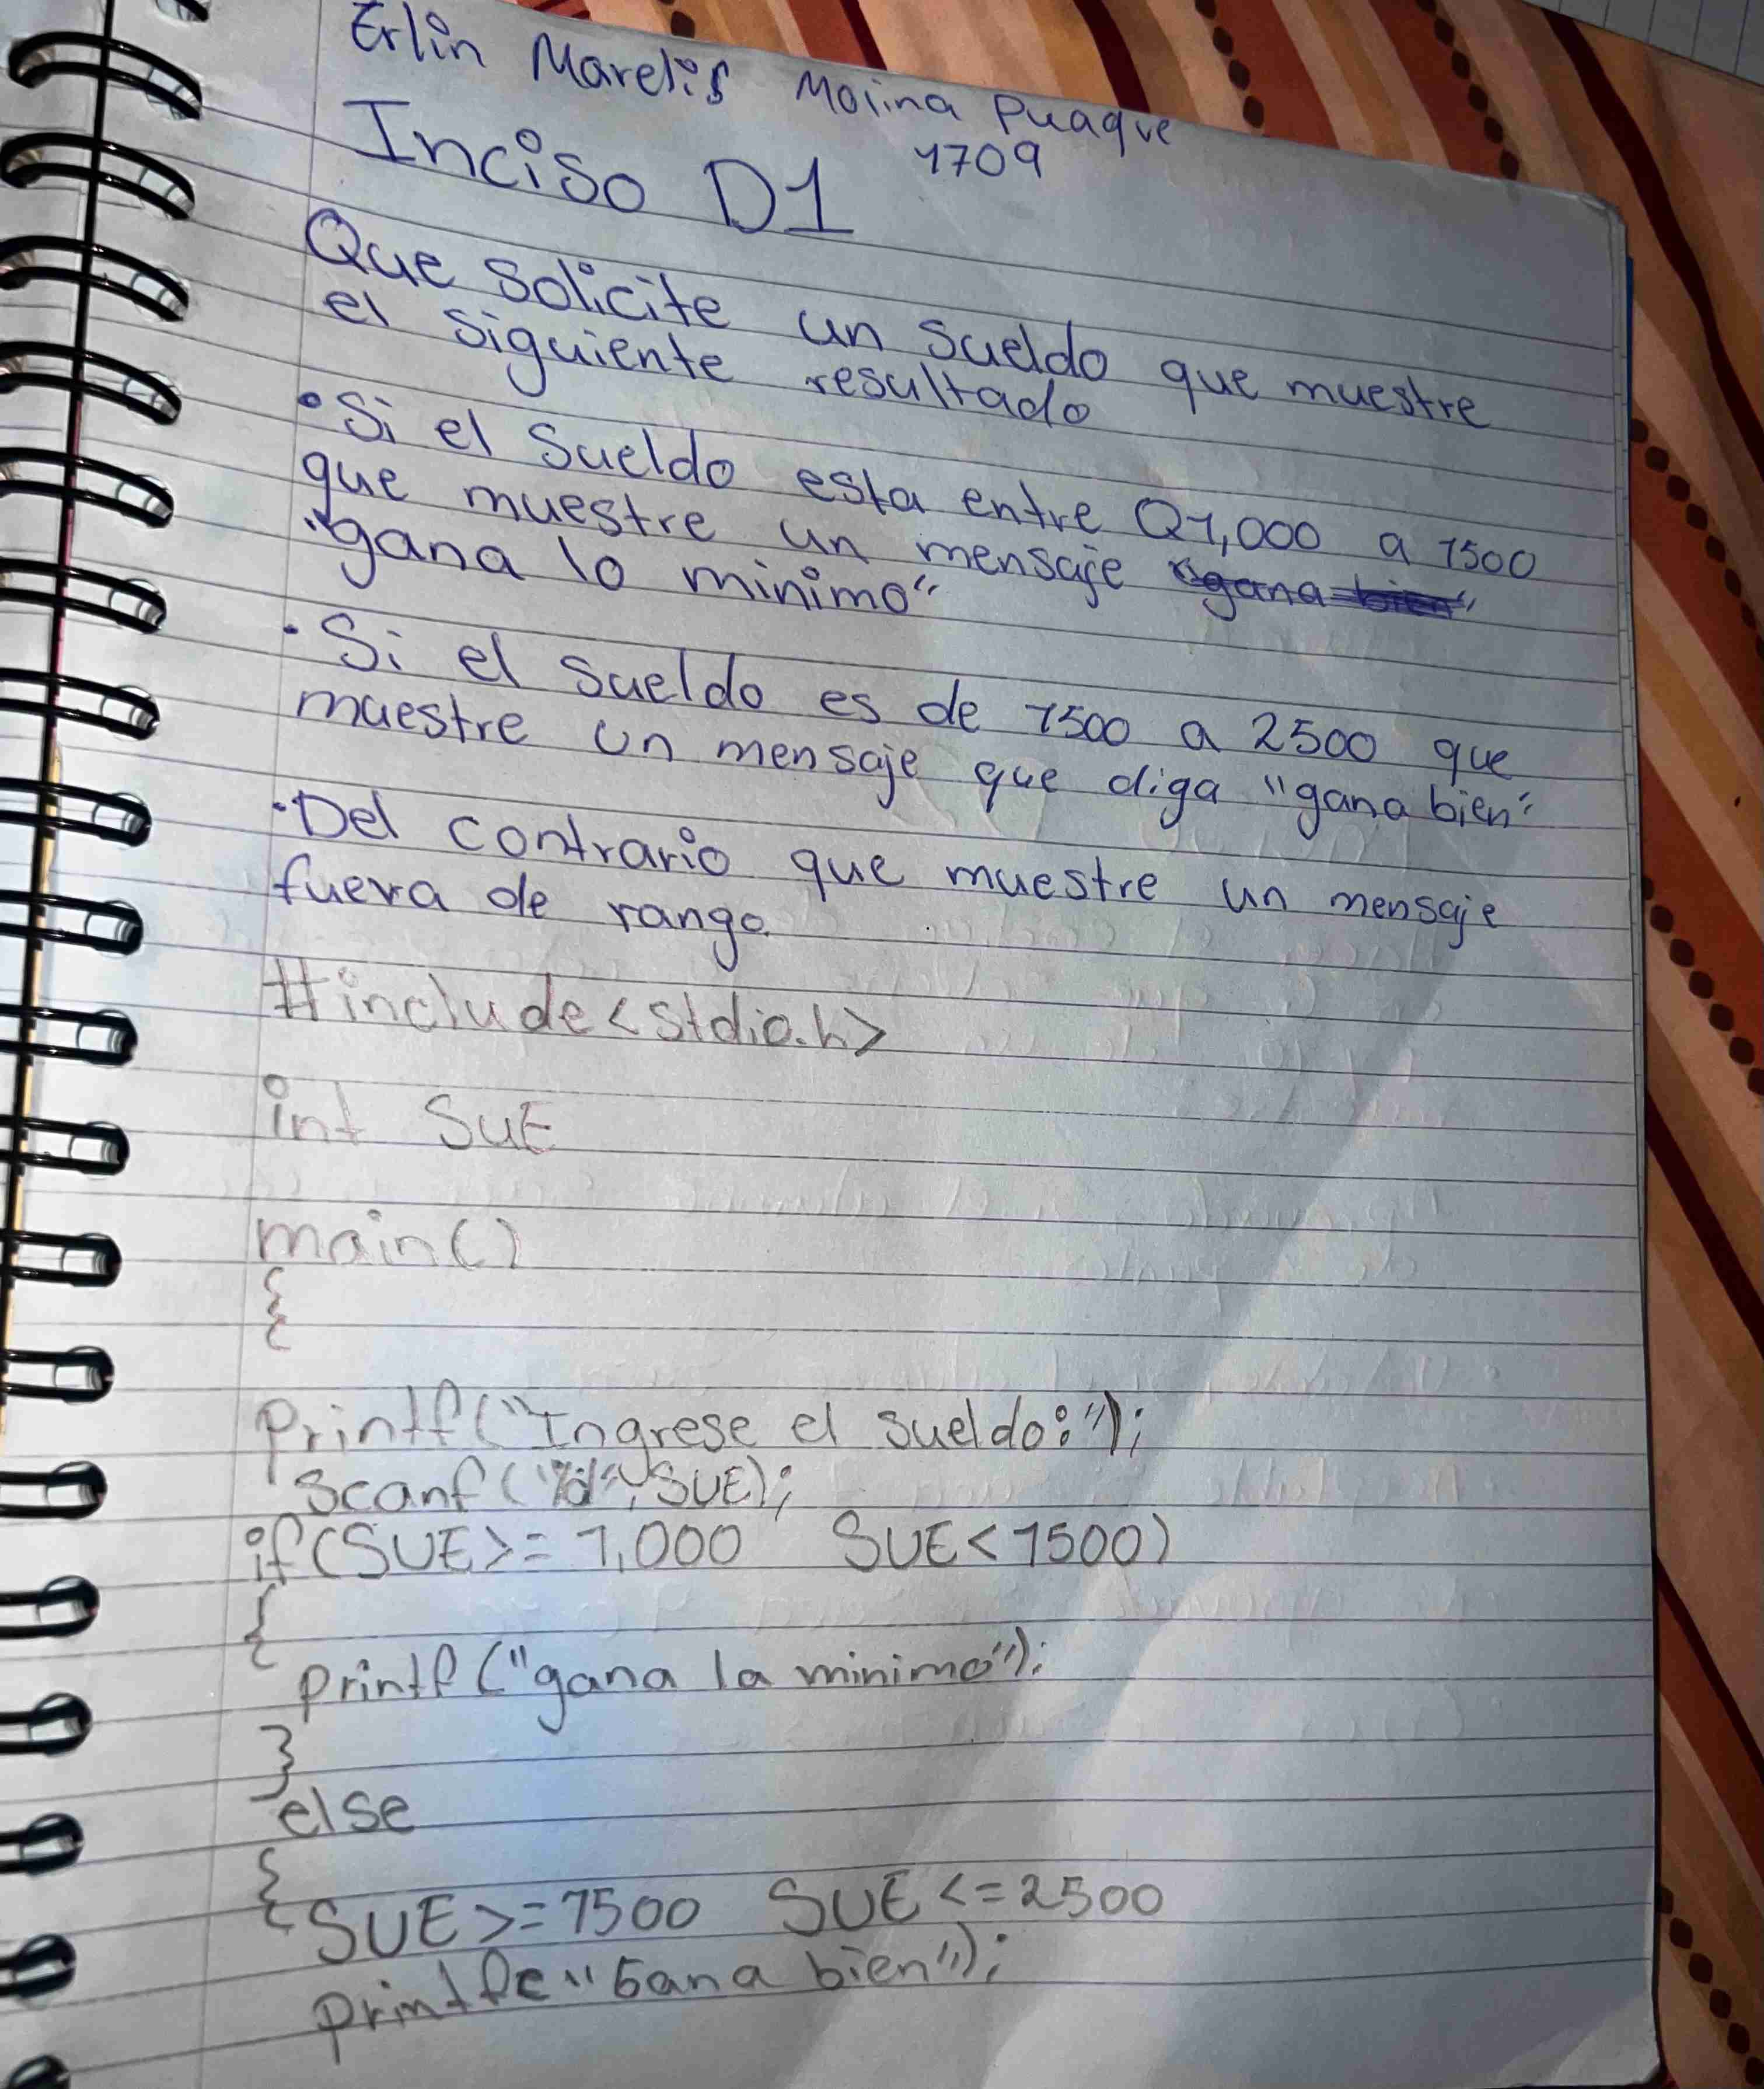 Erlin Marelis Moina Puaque
Inciso D1 1709
Que solicite un sueldo que muestre
el siguiente resultado
• Si el sueldo esta entre Q1,000 a 1500
que muestre un mensaje "gana bien"
"gana lo minimo"
• Si el sueldo es de 1500 a 2500 que
muestre un mensaje que diga "gana bien"
• Del contrario que muestre un mensaje
fuera de rango.
#include<stdio.h>
int SUE
main()
{
Printf("Ingrese el sueldo:");
Scanf("%d", SUE);
if(SUE>=1,000 SUE<1500)
{
printf("gana la minimo");
}
else
{
SUE>=1500 SUE<=2500
printf("Gana bien");